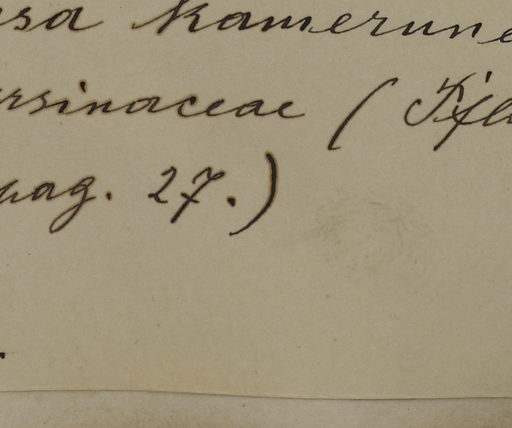 sa Kamerune
rsinaceae (
pag. 27.)
.